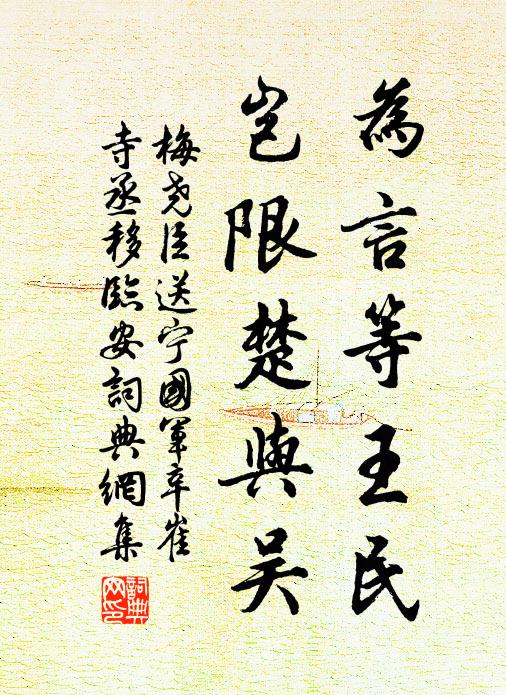 為言等王民
豈限楚與吴
梅尧臣送宁國軍卒崔
寺丞移臨安詞典網集
詞典